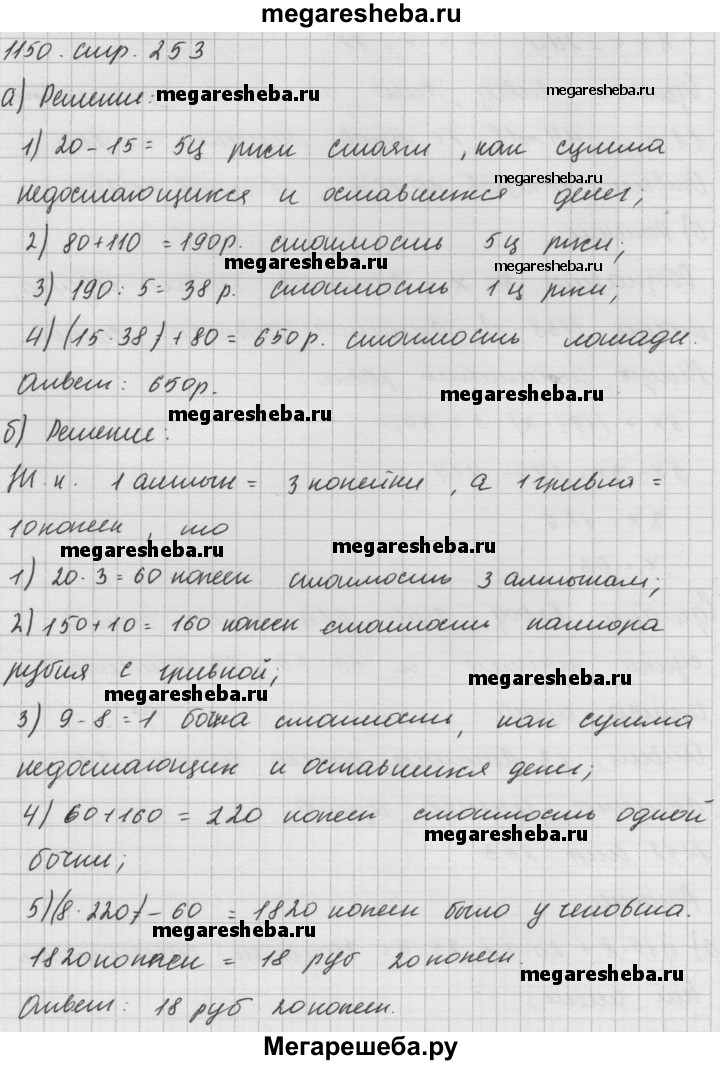 megaresheba.ru
1150. стр. 253
а) Решение: megaresheba.ru megaresheba.ru
1) 20 - 15 = 5ц ржи стояли, как сумма
megaresheba.ru
недостающихся и оставшихся денег;
2) 80 + 110 = 190р. стоимость 5ц ржи;
megaresheba.ru megaresheba.ru
3) 190 : 5 = 38 р. стоимость 1ц ржи;
4) (15 · 38) + 80 = 650р. стоимость лошади.
Ответ: 650р. megaresheba.ru
megaresheba.ru
б) Решение:
Т.к. 1 алтын = 3 копейки, а 1 гривна =
10 копеек, то
megaresheba.ru megaresheba.ru
1) 20 · 3 = 60 копеек стоимость 3 алтынам;
2) 150 + 10 = 160 копеек стоимости полтора
рубля с гривной;
megaresheba.ru megaresheba.ru
3) 9 - 8 = 1 бочка стоимости, как сумма
недостающих и оставшихся денег;
4) 60 + 160 = 220 копеек стоимость одной
megaresheba.ru
бочки;
5) (8 · 220) - 60 = 1820 копеек было у человека.
megaresheba.ru
1820 копеек = 18 руб 20 копеек.
megaresheba.ru
Ответ: 18 руб 20 копеек.
Мегарешеба.ру